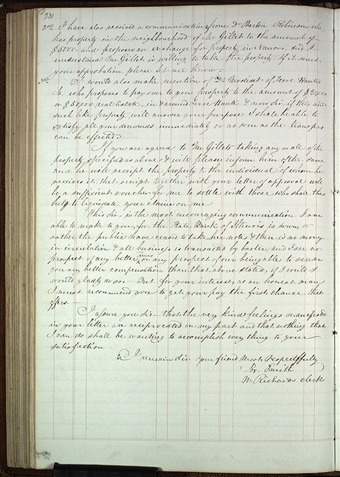 231
2nd I have also received a communication from Dr Barton Robinson, who
has property in the neighbourhood of Mr Gillets to the amount of
$5000 and proposes an exchange for property in Nauvoo, did I
understand Mr Gillets is willing to take the property if it meets
your approbation please let me know
3rd I would also make mention of Dr of Terre Haute
Ia. who proposes to pay over to your property to the amount of $2500
or $3000 real estate, in & around Terre Haute & now dir if this and
such like property will answer your purpose I shall be able to
satisfy all your demands immediately or as soon as the transfer
can be effected
If you are agreed to Mr Gillets taking any or all of the
property specified as above & will please inform him of the same
and he will accept the property & the individual of whom he
receives it, that receipt together with your letter of approval will
be a sufficient voucher for me to settle with those who shall thus
help to liquidate your claim on me
This Sir, is the most encouraging communication I am
able to make to you, for the State Bank of Illinois is down &
the public have ceased to take its notes & there is no money
in circulation & all business is transacted by barter, and I see no
prospect of any better times or any prospect of our being able to render
you any better compensation than that above stated, if I could I
would gladly do so. But for your interest, as an honest man,
I would recommend you to get your pay the first chance that
offers.
I assure you Sir that the very kind feelings manifested
in your letter are reciprocated on my part and that nothing that
I can do shall be wanting to accomplish every thing to your
satisfaction
I remain Sir your friend Most Respectfully
J. Smith
W. Richards clerk